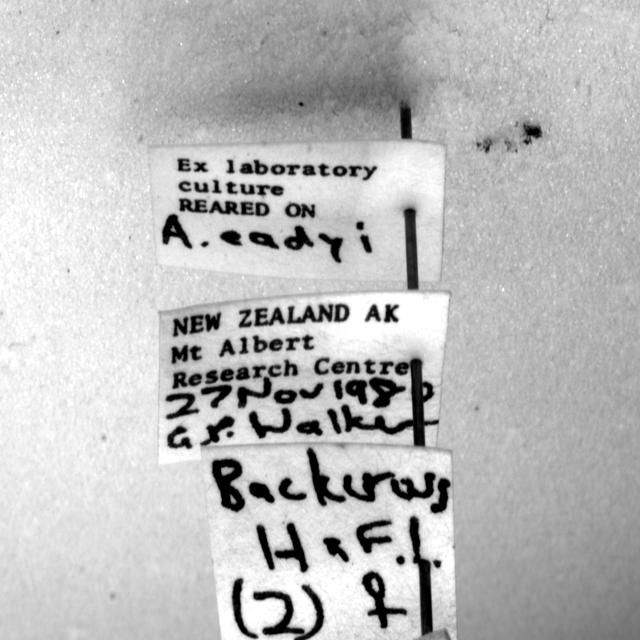 Ex laboratory
culture
REARED ON
A. eadyi
NEW ZEALAND AK
Mt Albert
Research Centre
27 Nov 1980
G.P. Walker
Backcross
H x F.1.
(2) ♀